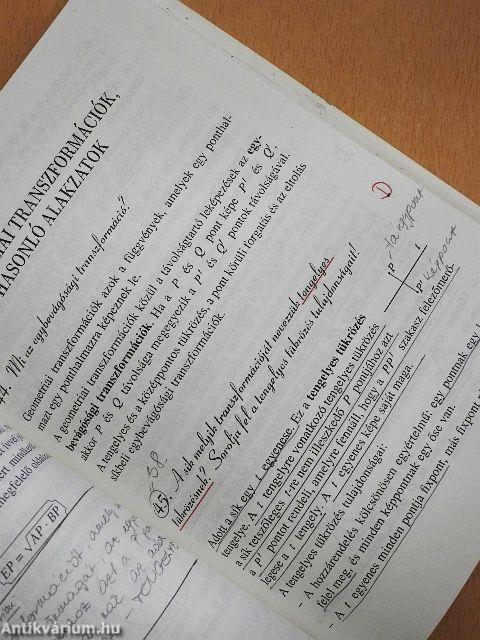 IAI TRANSZFORMÁCIÓK,
HASONLÓ ALAKZATOK
44. Mi az egybevágósági transzformáció?
Geometriai transzformációk azok a függvények, amelyek egy ponthal-
mazt egy ponthalmazra képeznek le.
A geometriai transzformációk közül a távolságtartó leképezések az egy-
bevágósági transzformációk. Ha a P és Q pont képe P' és Q',
akkor P és Q távolsága megegyezik a P' és Q' pontok távolságával.
A tengelyes és a középpontos tükrözés, a pont körüli forgatás és az eltolás
síkbeli egybevágósági transzformációk.
58
45. A sík melyik transzformációját nevezzük tengelyes
tükrözésnek? Sorolja fel a tengelyes tükrözés tulajdonságait!
D
tárgypont
P
t
P' képpont
Adott a sík egy t egyenese. Ez a tengelyes tükrözés
tengelye. A t tengelyre vonatkozó tengelyes tükrözés
a sík tetszőleges t-re nem illeszkedő P pontjához azt
a P' pontot rendeli, amelyre fennáll, hogy a PP' szakasz felezőmerő-
legese a t tengely. A t egyenes képe saját maga.
A tengelyes tükrözés tulajdonságai:
– A hozzárendelés kölcsönösen egyértelmű: egy pontnak egy
felel meg, és minden képpontnak egy őse van.
– A t egyenes minden pontja fixpont, más fixpont
megfelelő oldal
EP = √AP · BP
Antikvárium.hu